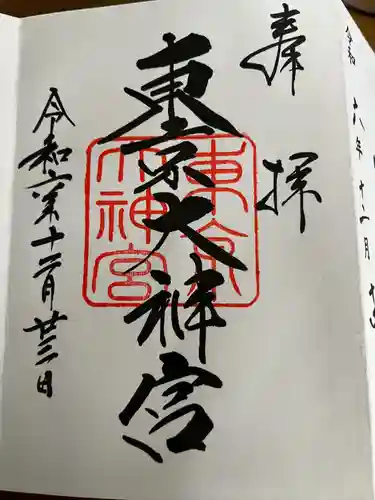 奉拝
東京大神宮
東京大神宮
令和六年十二月廿三日
令和六年十二月